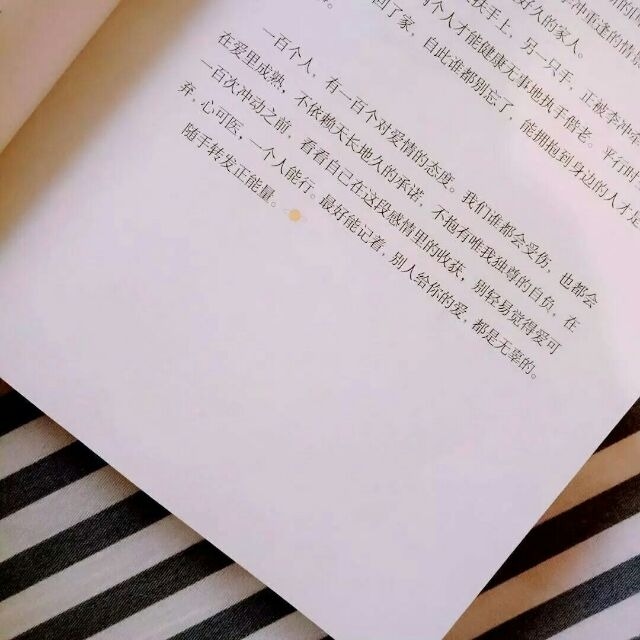 重逢的情
好久的家人。
扶手上，另一只手，正被李冲
个人才能健康无事地执手偕老。平行时
回了家，自此谁都别忘了，能拥抱到身边的人才是
一百个人，有一百个对爱情的态度。我们谁都会受伤，也都会
在爱里成熟，不依赖天长地久的承诺，不抱有唯我独尊的自负，在
一百次冲动之前，看看自己在这段感情里的收获，别轻易觉得爱可
弃，心可医，一个人能行。最好能记着，别人给你的爱，都是无辜的。
随手转发正能量。